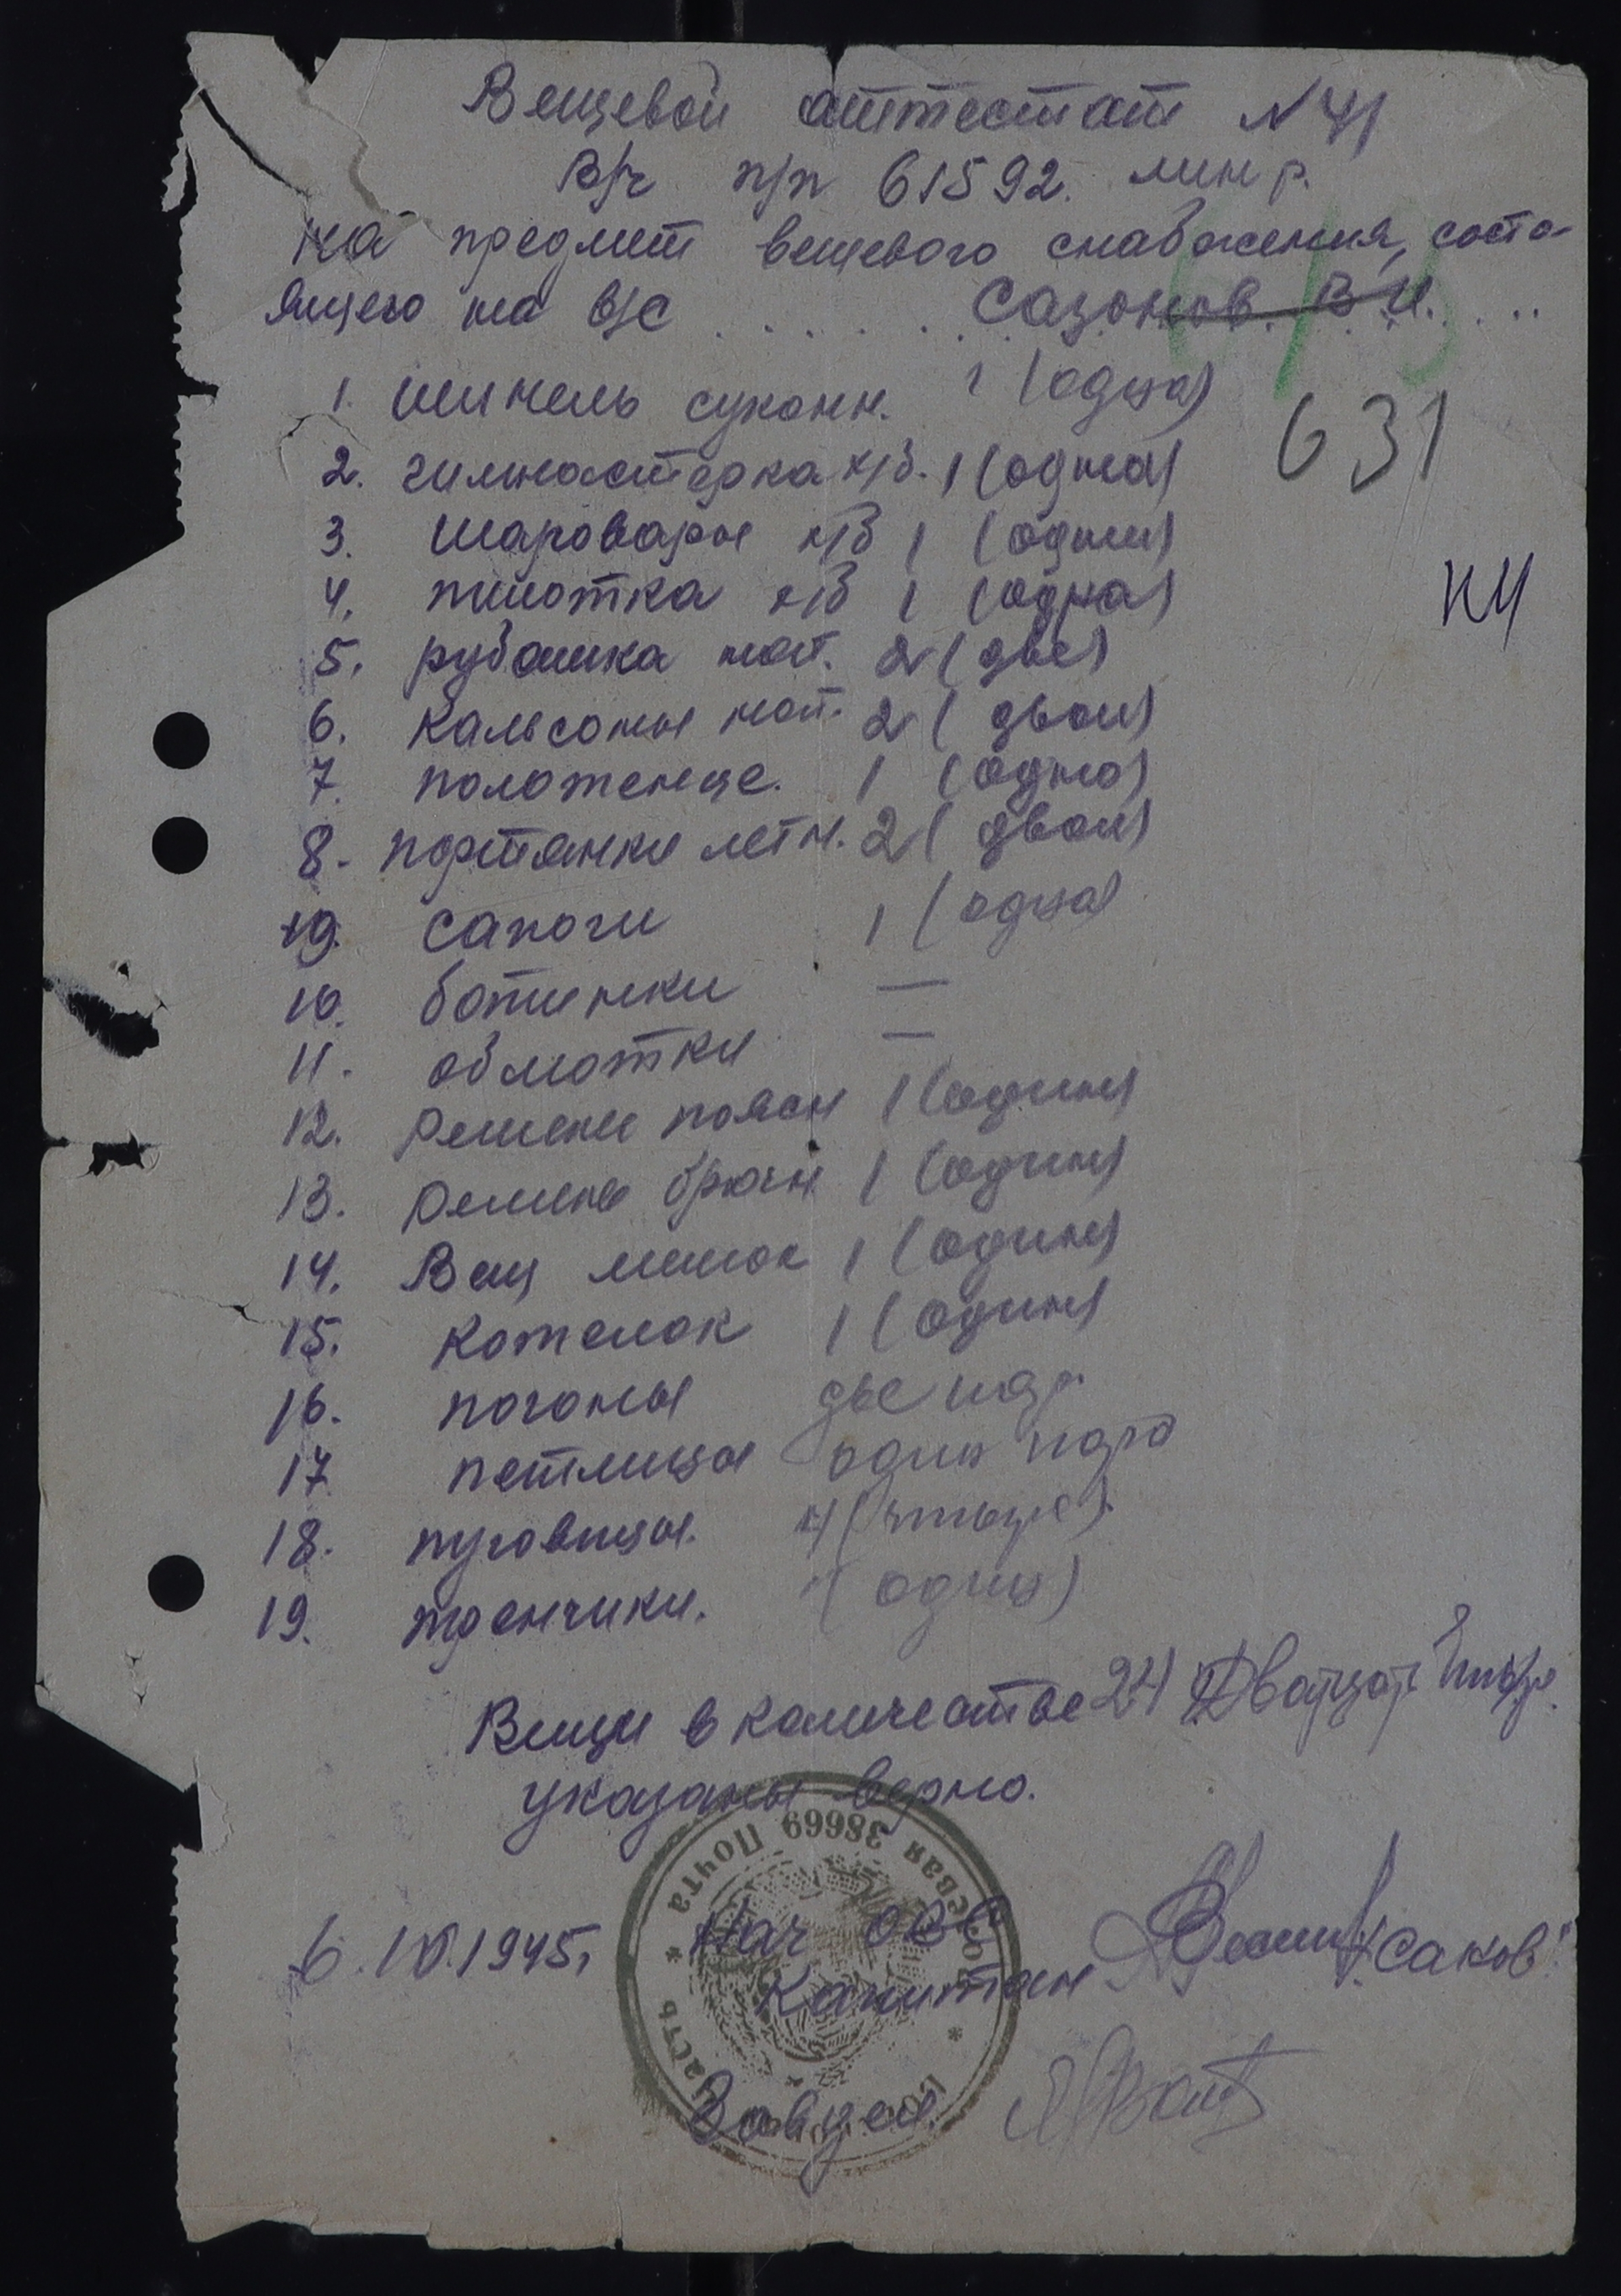 Вещевой аттестат N 41
В/ч п/п 61592. мин р.
на предмет вещевого снабжения, состо-
ящего на в/с Сазонов. В И.
1. шинель суконн. 1 (одна)
631
2. гимнастерка х/б. 1 (одна)
3. шаровары х/б 1 (одни)
4. пилотка х/б 1 (одна)
КЧ
5. рубашка нат. 2 (две)
6. Кальсоны нат. 2 (двои)
7. полотенце. 1 (одно)
8. портянки летн. 2 (двои)
9. сапоги 1 (одна)
10. ботинки —
11. обмотки —
12. ремень поясн 1 (один)
13. ремень брючн 1 (один)
14. Вещ мешок 1 (один)
15. Котелок 1 (один)
16. погоны две пар.
17 петлицы один пара
18. пуговицы. 4 (чтыре).
19. тренчики. (один)
Вещи в количестве 24 Двацат чтыре
указаны верно.
Полевая Почта * Войсковая Часть * 38669
6.10.1945. Нач ОВС
Капитан Исаков
Завдел.